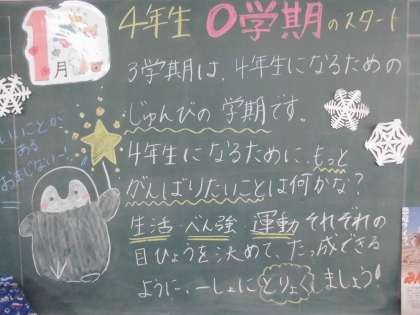 4年生 0学期のスタート
1月
3学期は、4年生になるための
じゅんびの学期です。
いいことが
ある
おまじない〜!
4年生になるために、もっと
がんばりたいことは何かな?
生活・べん強・運動 それぞれの
目ひょうを決めて、たっ成できる
ように、一しょに どりょくしましょう!